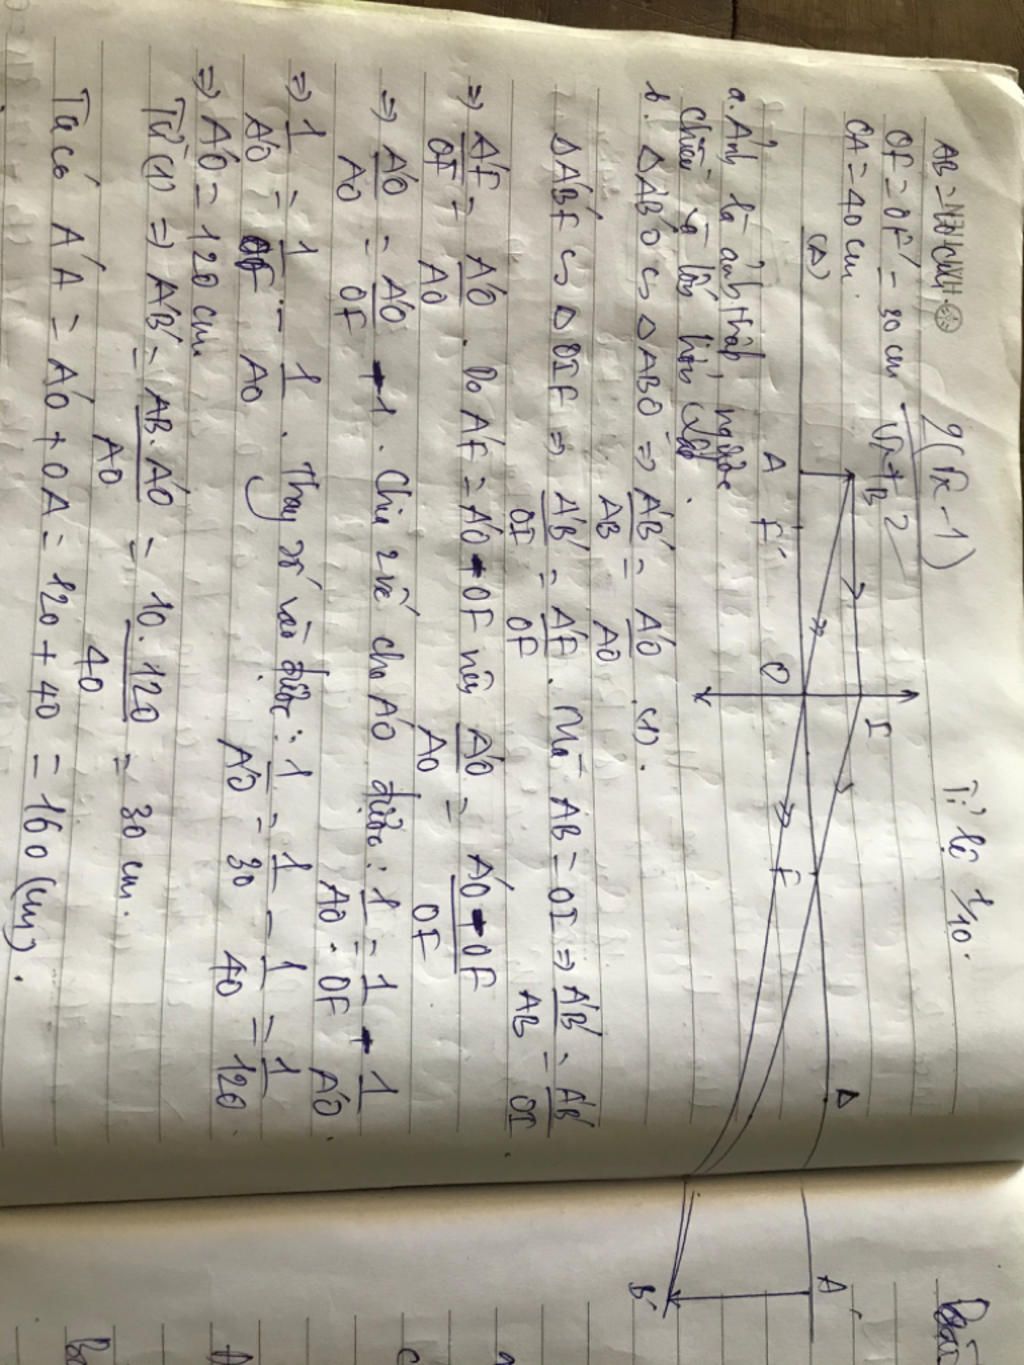 Tỉ lệ 1/10.
OF = OF' = 30 cm
OA = 40 cm.
(Δ) A F' O F Δ A'
B I B'
a. Ảnh là ảnh thật, ngược
chiều và lớn hơn vật.
b. ΔA'B'O ∽ ΔABO => A'B'/AB = A'O/AO (1).
ΔA'B'F ∽ ΔOIF => A'B'/OI = A'F/OF. Mà AB = OI => A'B'/AB = A'B'/OI
=> A'F/OF = A'O/AO. Do A'F = A'O - OF nên A'O/AO = A'O - OF/OF
=> A'O/AO = A'O/OF - 1. Chia 2 vế cho A'O được: 1/AO = 1/OF - 1/A'O.
=> 1/A'O = 1/OF - 1/AO. Thay số vào được: 1/A'O = 1/30 - 1/40 = 1/120.
=> A'O = 120 cm
Từ (1) => A'B' = AB.A'O/AO = 10.120/40 = 30 cm.
Ta có A'A = A'O + OA = 120 + 40 = 160 (cm).